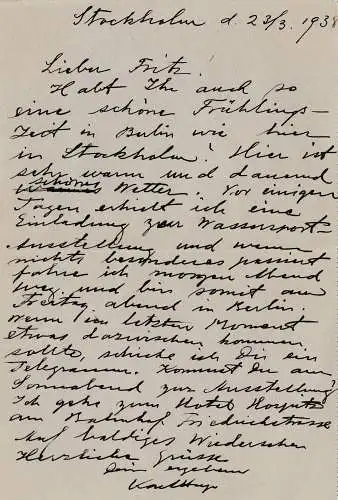 Stockholm d. 23/3. 1938
Lieber Fritz!
Habt Ihr auch so
eine schöne Frühlings-
Zeit in Berlin wie hier
in Stockholm? Hier ist
sehr warm und dauernd
schönes Wetter. Vor einigen
Tagen erhielt ich eine
Einladung zur Wassersport-
Ausstellung und wenn
nichts besonderes passiert
fahre ich morgen Abend
weg und bin somit am
Freitag abend in Berlin.
Wenn im letzten Moment
etwas dazwischen kommen
sollte, schicke ich Dir ein
Telegramm. Kommst Du am
Sonnabend zur Ausstellung?
Ich gehe zum Hotel Hospitz
am Bahnhof Friedrichstrasse
Auf baldiges Wiedersehen
Herzliche Grüsse
Dein ergebener